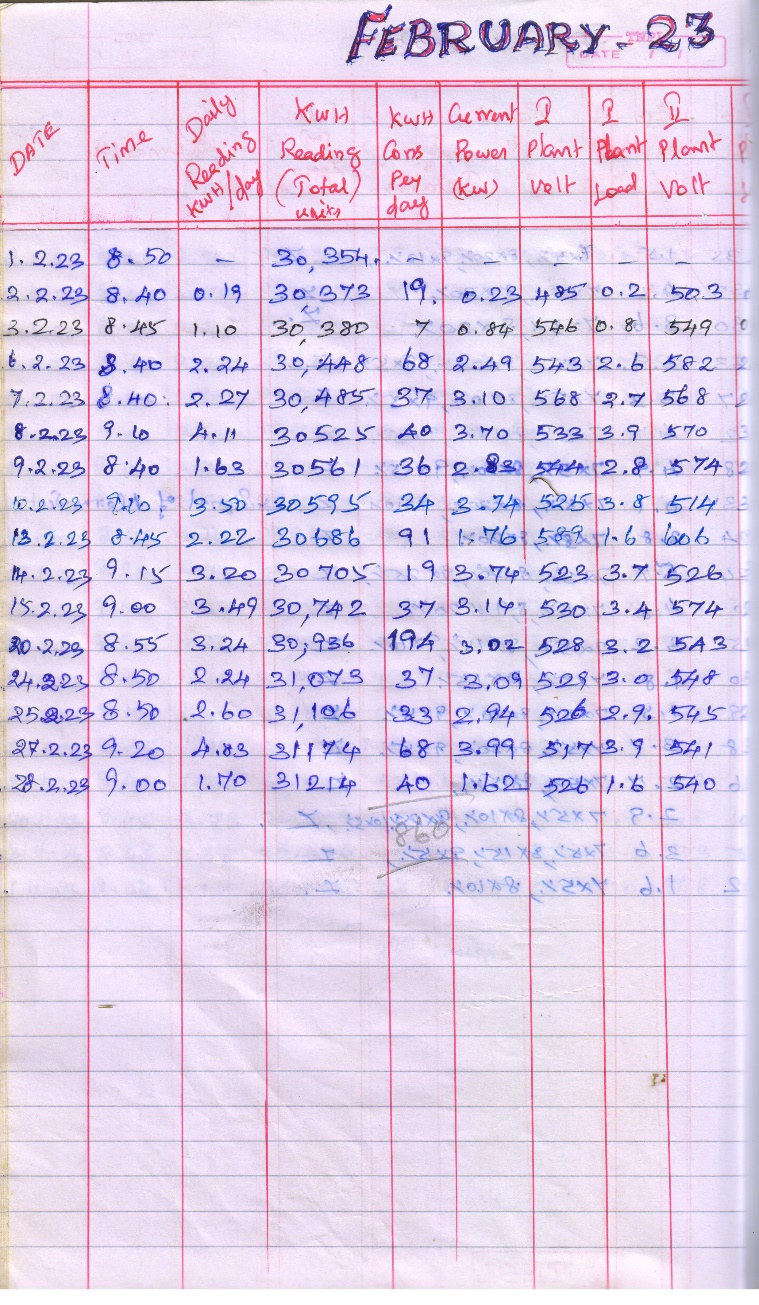 FEBRUARY-23
DATE Time Daily Reading KWH/day KWH Reading (Total) units KWH Cons Per day Current Power (KW) I Plant Volt I Plant Load II Plant Volt
1.2.23 8.50 - 30,354. - - - - -
2.2.23 8.40 0.19 30,373 19. 0.23 485 0.2 503
3.2.23 8.45 1.10 30,380 7 0.84 546 0.8 549
6.2.23 8.40 2.24 30,448 68 2.49 543 2.6 582
7.2.23 8.40. 2.27 30,485 37 3.10 568 2.7 568
8.2.23 9.10 4.11 30525 40 3.70 533 3.9 570
9.2.23 8.40 1.63 30561 36 2.83 544 2.8 574
10.2.23 9.10. 3.50 30595 34 3.74 525 3.8 514
13.2.23 8.45 2.22 30686 91 1.76 589 1.6 606
14.2.23 9.15 3.20 30705 19 3.74 523 3.7 526
15.2.23 9.00 3.49 30,742 37 3.14 530 3.4 574
20.2.23 8.55 3.24 30,936 194 3.02 528 3.2 543
24.2.23 8.50 2.24 31,073 37 3.09 529 3.0 548
25.2.23 8.50 2.60 31,106 33 2.94 526 2.9. 545
27.2.23 9.20 4.83 31174 68 3.99 517 3.9 541
28.2.23 9.00 1.70 31214 40 1.62 526 1.6 540
860